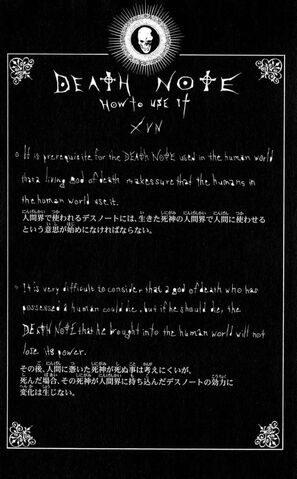 DEATH NOTE
HOW TO USE IT
XVII
○ It is prerequisite for the DEATH NOTE used in the human world
that a living god of death makes sure that the humans in
the human world use it.
人間界で使われるデスノートには、生きた死神の人間界で人間に使わせる
という意思が始めになければならない。
○ It is very difficult to consider that a god of death who has
possessed a human could die, but if he should die, the
DEATH NOTE that he brought into the human world will not
lose its power.
その後、人間に憑いた死神が死ぬ事は考えにくいが、
死んだ場合、その死神が人間界に持ち込んだデスノートの効力に
変化は生じない。